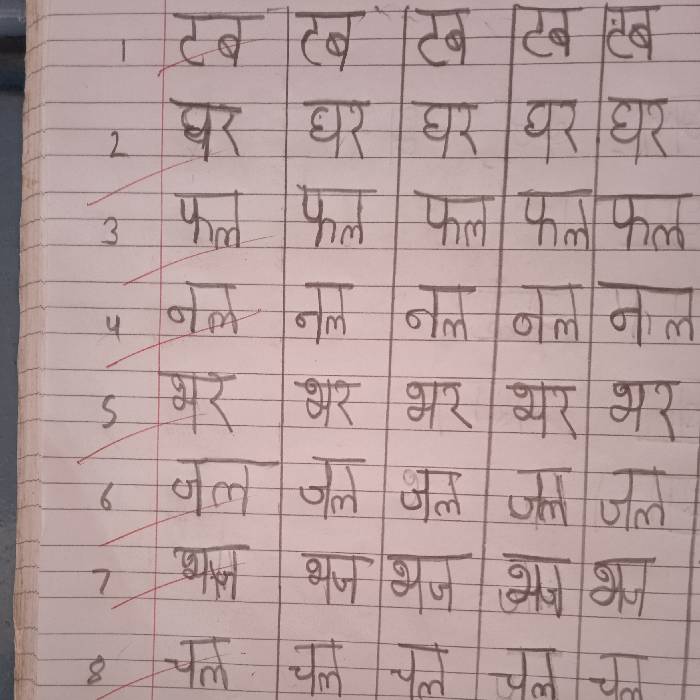 1 टब टब टब टब टब
2 घर घर घर घर घर
3 फल फल फल फल फल
4 नल नल नल नल नल
5 भर भर भर भर भर
6 जल जल जल जल जल
7 भज भज भज भज भज
8 चल चल चल चल चल